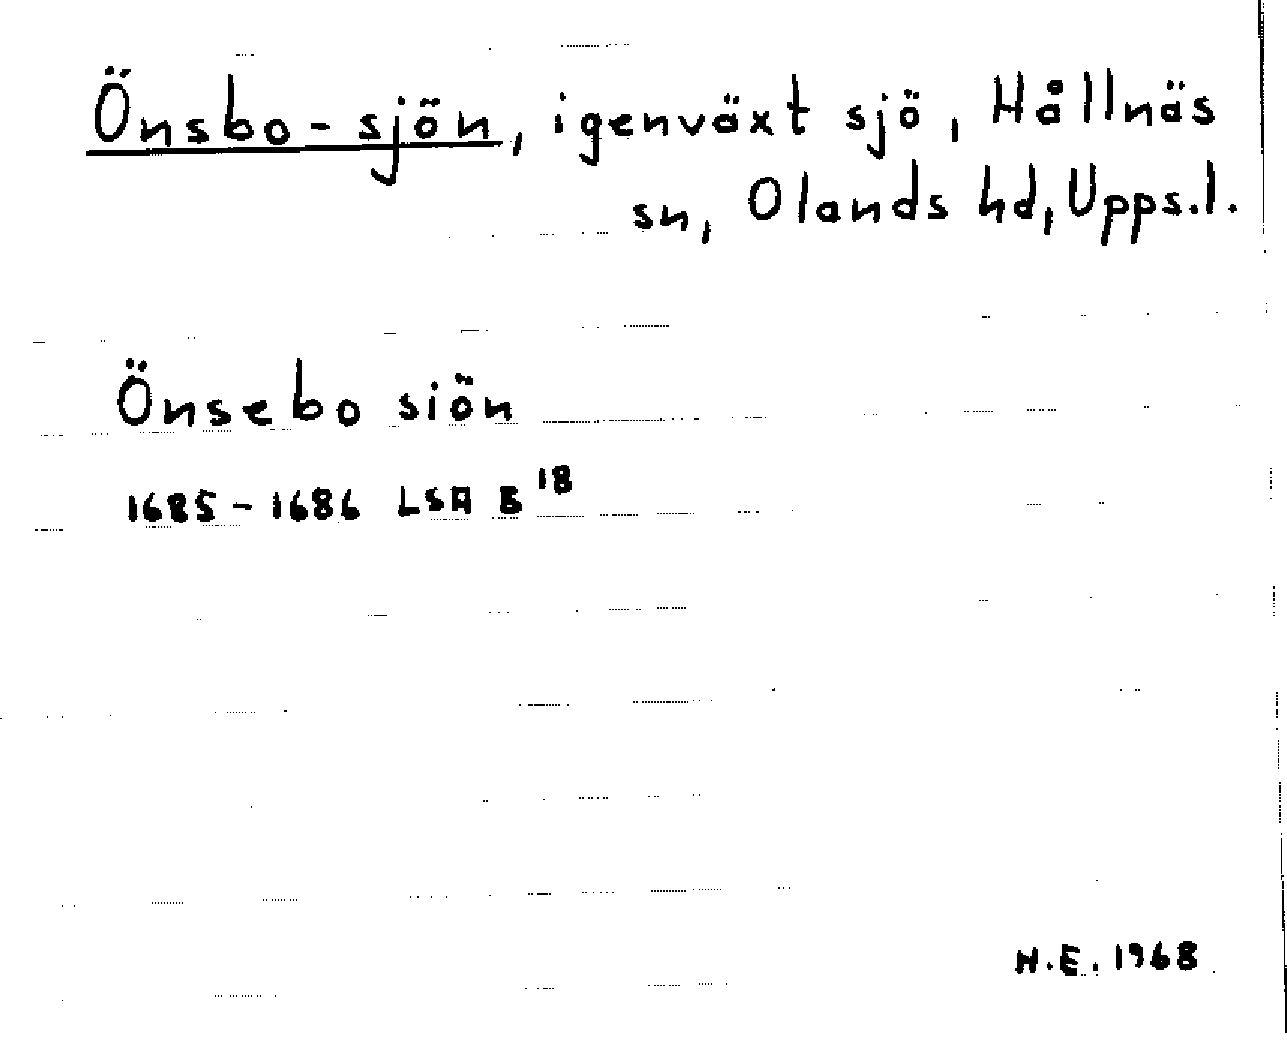 Önsbo-sjön, igenväxt sjö, Hållnäs
sn, Olands hd, Upps.l.
Önsebo siön
1685-1686 LSA B 18
H.E. 1968